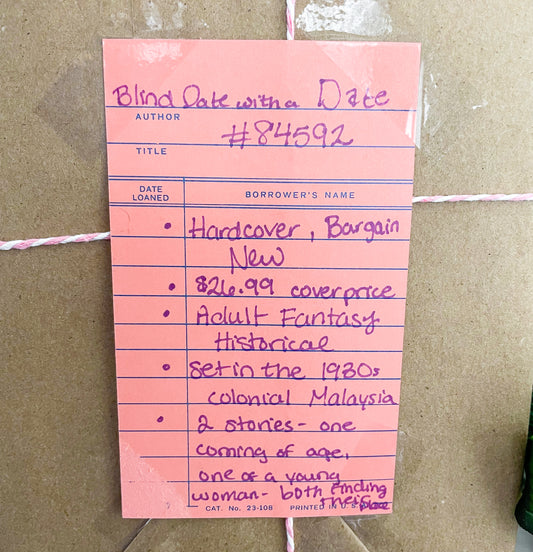 Blind Date with a Date
AUTHOR
#84592
TITLE
DATE LOANED
BORROWER'S NAME
• Hardcover, Bargain
New
• $26.99 cover price
• Adult Fantasy
Historical
• Set in the 1930s
colonial Malaysia
• 2 stories- one
coming of age,
one of a young
woman- both finding
their place
CAT. No. 23-108 PRINTED IN U.S.